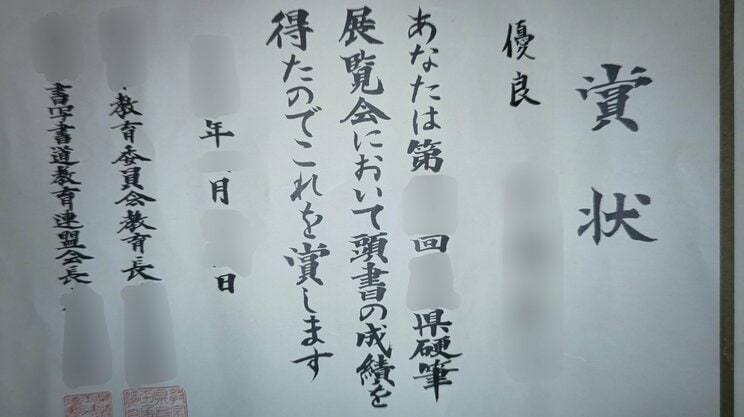 賞状
優良
あなたは第回県硬筆
展覧会において頭書の成績を
得たのでこれを賞します
年月日
教育委員会教育長
書写書道教育連盟会長